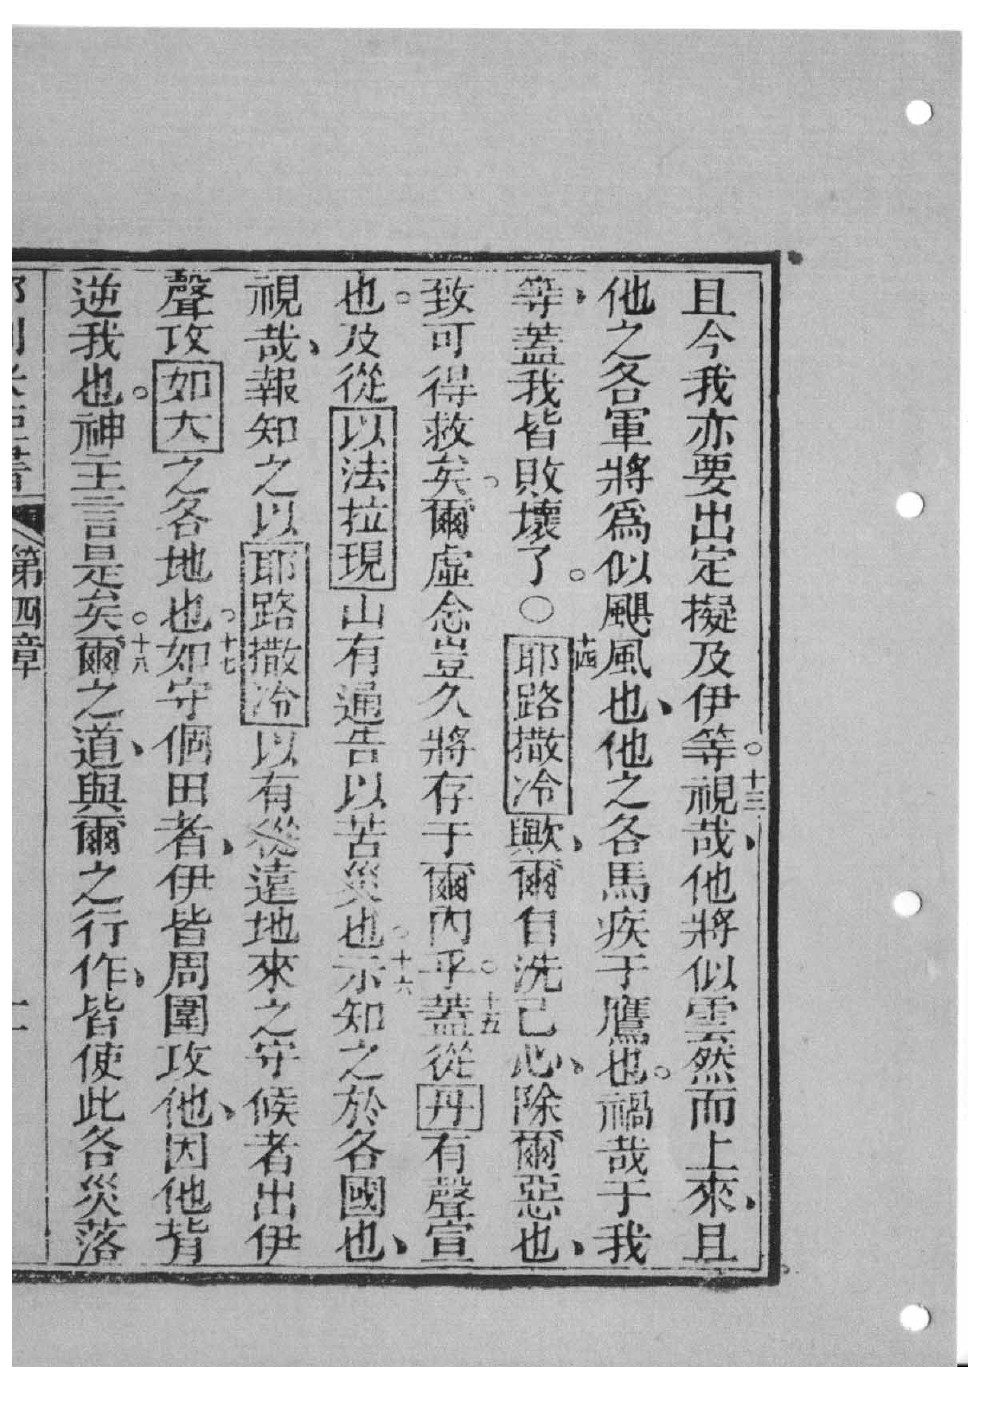 且今我亦要出定擬及伊等。十三視哉、他將似雲然而上來、且
他之各軍將爲似颶風也、他之各馬疾于鷹也。禍哉于我
等、蓋我皆敗壞了。〇十四耶路撒冷歟、爾自洗己心、除爾惡也、
致可得救矣。爾虛念豈久將存于爾內乎。十五蓋從丹有聲宣
也。及從以法拉現山有通告以苦災也。十六示知之於各國也、
視哉、報知之以耶路撒冷以有從遠地來之守候者出伊
聲攻如大之各地也。十七如守個田者、伊皆周圍攻他、因他背
逆我也。神主言是矣。十八爾之道、與爾之行作、皆使此各災落
第四章